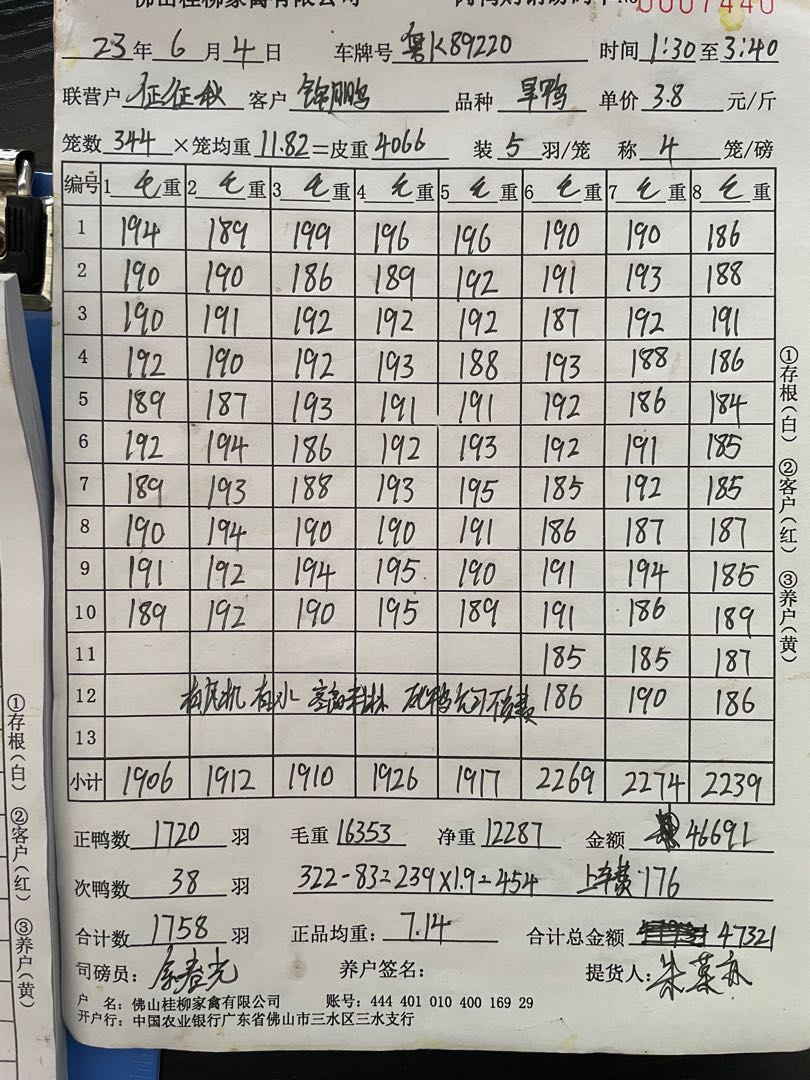 佛山桂柳家禽有限公司 0007440
23年6月4日 车牌号 粤K89220 时间1:30至3:40
联营户 征征秋 客户 品种 旱鸭 单价3.8元/斤
笼数344×笼均重11.82=皮重4066 装5羽/笼 称4笼/磅
编号 1毛重 2毛重 3毛重 4毛重 5毛重 6毛重 7毛重 8毛重
1 194 189 199 196 196 190 190 186
2 190 190 186 189 192 191 193 188
3 190 191 192 192 192 187 192 191
4 192 190 192 193 188 193 188 186
5 189 187 193 191 191 192 186 184
6 192 194 186 192 193 192 191 185
7 189 193 188 193 195 185 192 185
8 190 194 190 190 191 186 187 187
9 191 192 194 195 190 191 194 185
10 189 192 190 195 189 191 186 189
11 185 185 187
12 有风机 有水 186 190 186
13
小计 1906 1912 1910 1926 1917 2269 2274 2239
正鸭数1720羽 毛重16353 净重12287 金额46691
次鸭数38羽 322-83=239×1.9=454 上车费176
合计数1758羽 正品均重:7.14 合计总金额47321
司磅员: 养户签名: 提货人:
户 名:佛山桂柳家禽有限公司 账号:444 401 010 400 169 29
开户行:中国农业银行广东省佛山市三水区三水支行
①存根(白) ②客户(红) ③养户(黄)
①存根(白) ②客户(红) ③养户(黄)